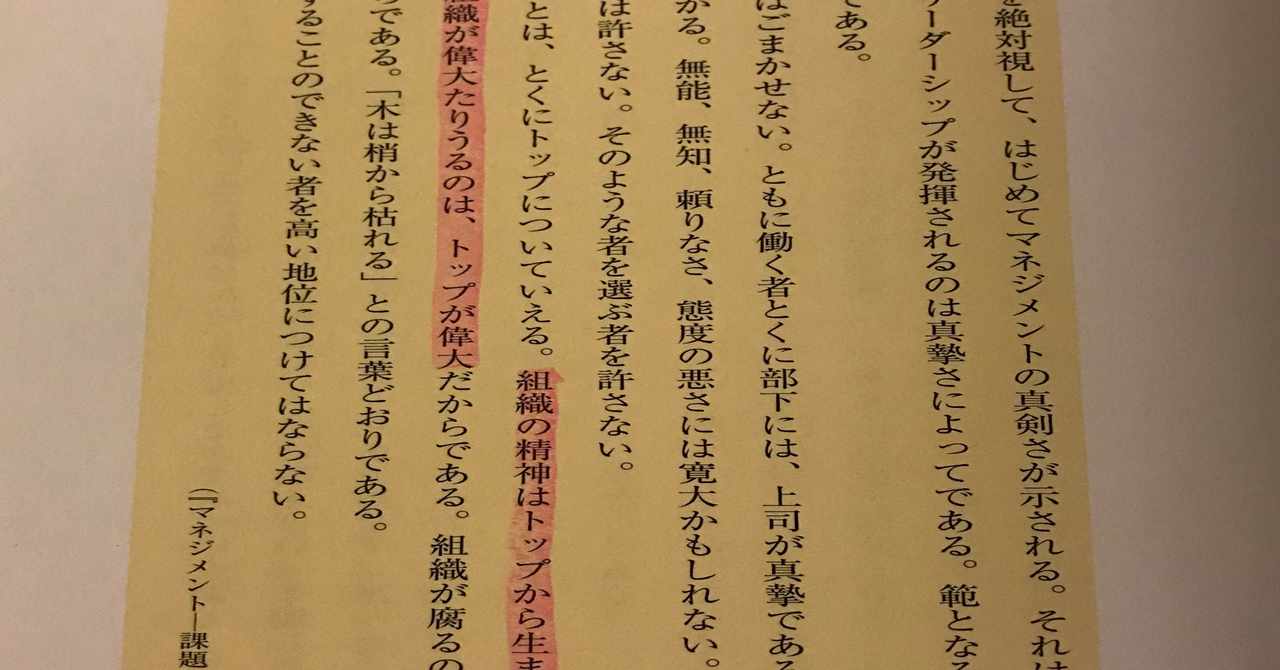 を絶対視して、はじめてマネジメントの真剣さが示される。それは
リーダーシップが発揮されるのは真摯さによってである。範となる
である。
はごまかせない。ともに働く者とくに部下には、上司が真摯である
かる。無能、無知、頼りなさ、態度の悪さには寛大かもしれない。
は許さない。そのような者を選ぶ者を許さない。
とは、とくにトップについていえる。組織の精神はトップから生ま
組織が偉大たりうるのは、トップが偉大だからである。組織が腐るの
のである。「木は梢から枯れる」との言葉どおりである。
することのできない者を高い地位につけてはならない。
(『マネジメント―課題